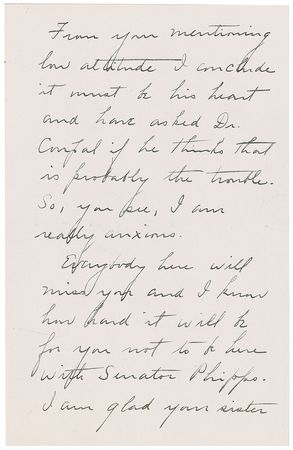 From your mentioning
low altitude I conclude
it must be his heart
and have asked Dr.
if he thinks that
is probably the trouble.
So, you see, I am
really anxious.
Everybody here will
miss you and I know
how hard it will be
for you not to be here
with Senator Phipps.
I am glad your sister